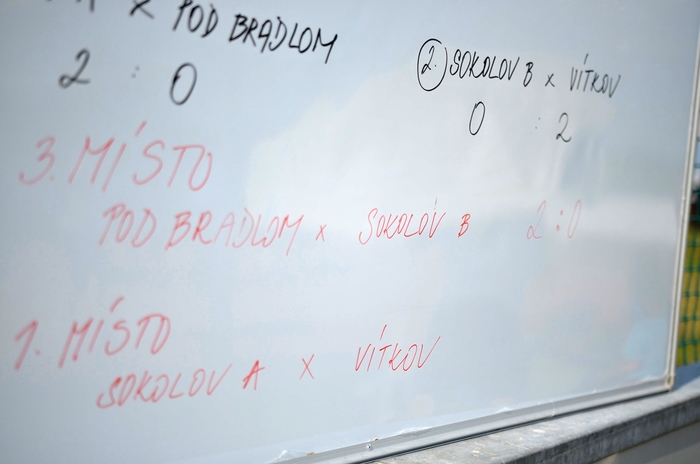 x POD BRADLOM
2 : 0
2. SOKOLOV B x VÍTKOV
0 : 2
3. MÍSTO
POD BRADLOM x SOKOLOV B 2:0
1. MÍSTO
SOKOLOV A x VÍTKOV